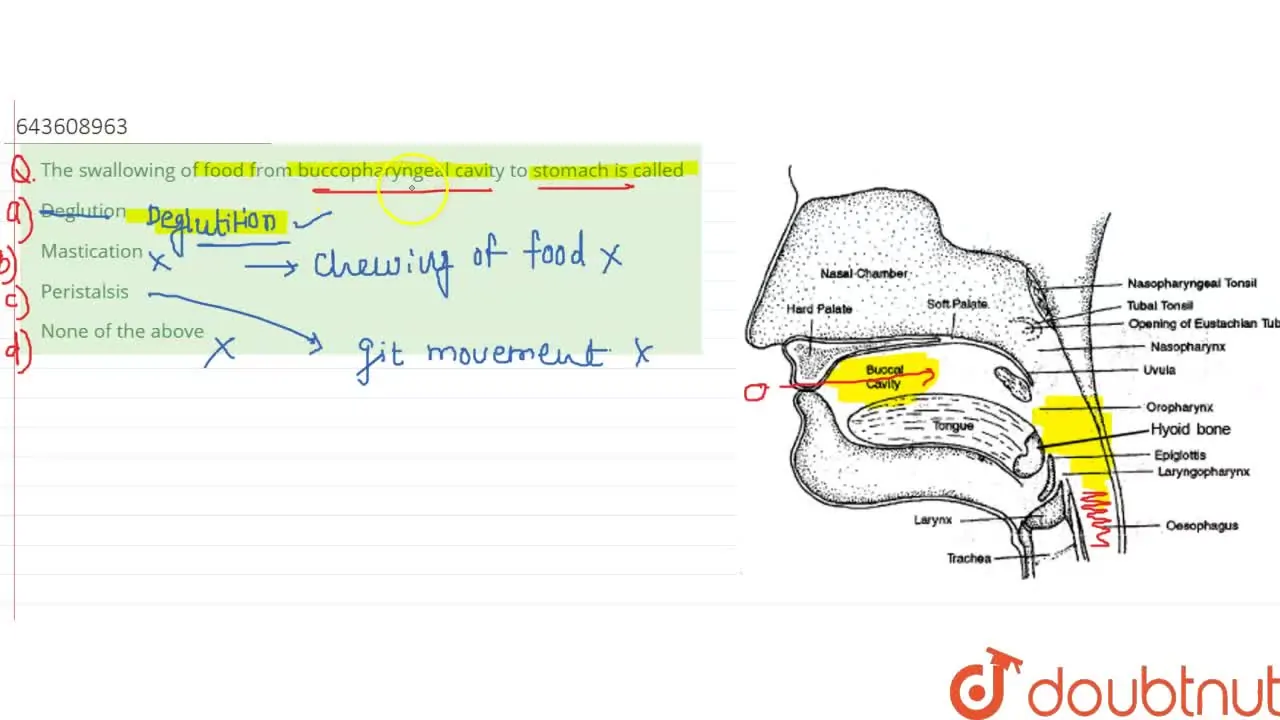 643608963
Q. The swallowing of food from buccopharyngeal cavity to stomach is called
a) Deglution Deglutition ✓
b) Mastication x → Chewing of food x
c) Peristalsis → git movement x
d) None of the above x
Nasal Chamber
Hard Palate
Soft Palate
Buccal
Cavity
Tongue
Larynx
Trachea
Nasopharyngeal Tonsil
Tubal Tonsil
Opening of Eustachian Tub
Nasopharynx
Uvula
Oropharynx
Hyoid bone
Epiglottis
Laryngopharynx
Oesophagus
doubtnut